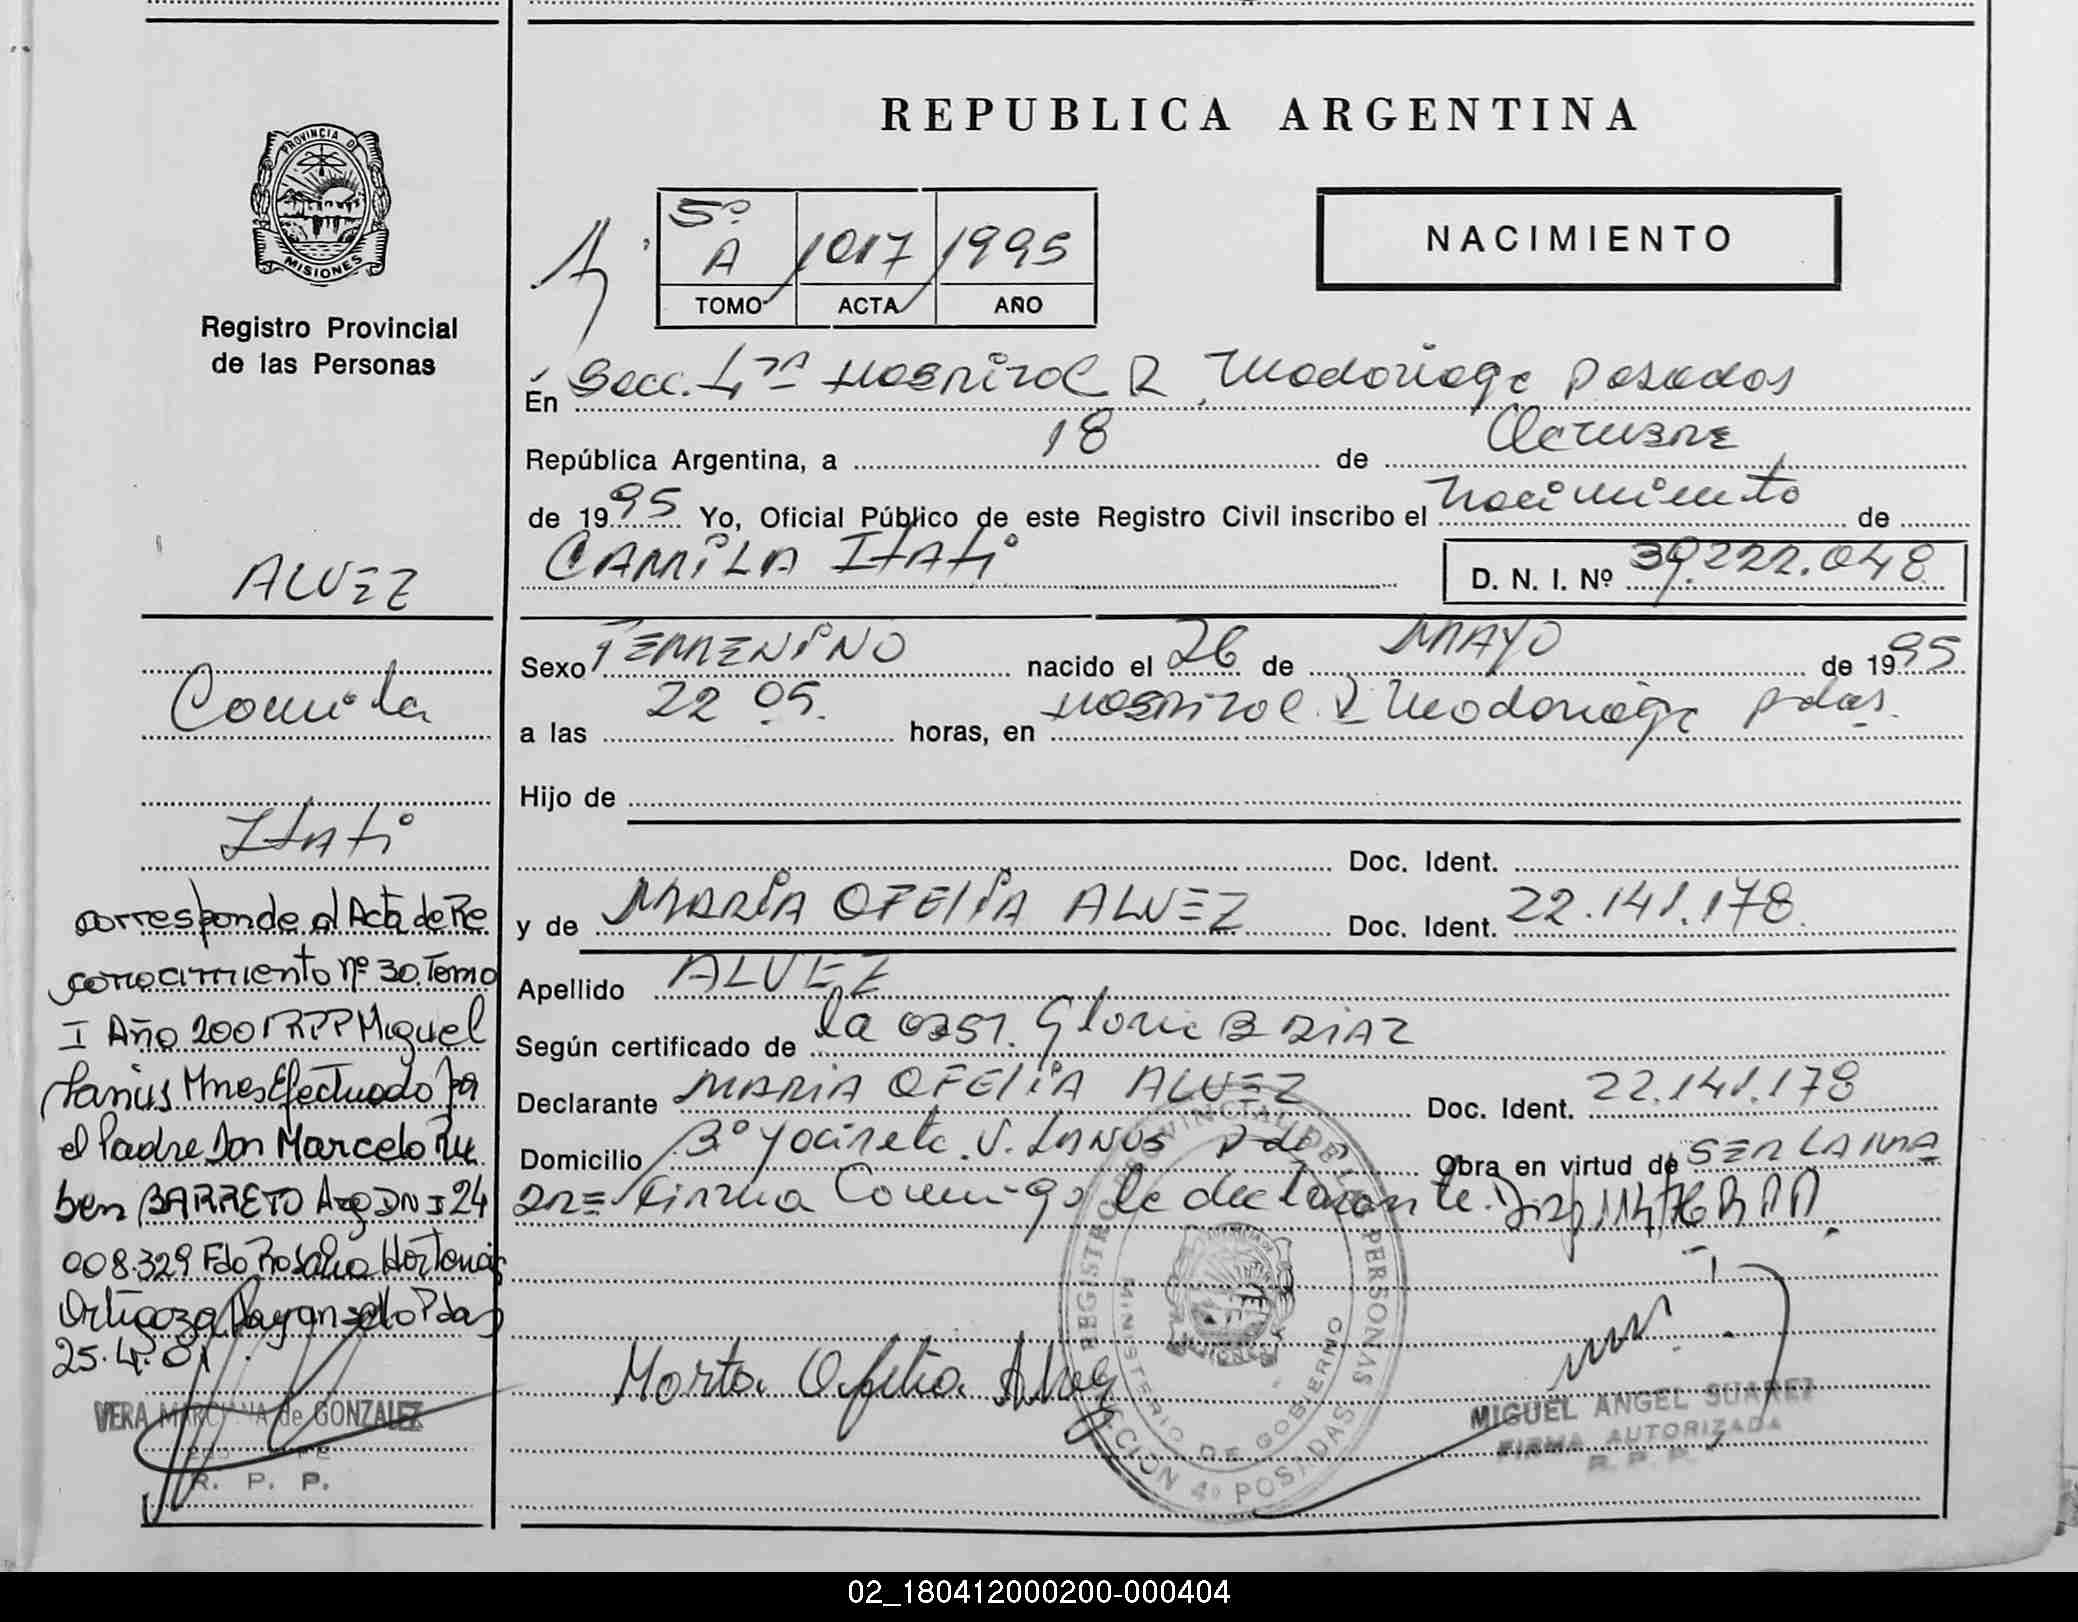 REPUBLICA ARGENTINA
PROVINCIA DE
MISIONES
Registro Provincial
de las Personas
5º
A 1017 1995
TOMO ACTA AÑO
NACIMIENTO
En Secc. 4ta Hospital R Madariaga Posadas
República Argentina, a 18 de Octubre
de 1995 Yo, Oficial Público de este Registro Civil inscribo el Nacimiento de
CAMILA ITATI D. N. I. Nº 39.222.048
Sexo FEMMENINO nacido el 26 de MAYO de 1995
a las 22 05. horas, en Hospital R Madariaga Pdas.
Hijo de
Doc. Ident.
y de MARIA OFELIA ALVEZ Doc. Ident. 22.141.178
Apellido ALVEZ
Según certificado de la obst. Gloria B DIAZ
Declarante MARIA OFELIA ALVEZ Doc. Ident. 22.141.178
Domicilio Bº Yacireta V. LANUS Pdas Obra en virtud de SER LA MA
DRE Firma Conmigo la declarante. Disp 114/76 RPP.
ALVEZ
Camila
Itati
corresponde al Acta de Re
conocimiento Nº 30. Tomo
I Año 2001 RPP Miguel
Lanús Mnes Efectuado Por
el Padre Don Marcelo Ru
ben BARRETO Arg DNI 24
008.329 Fdo Rosalia Hortencia
Ortigoza Pdas
25.4.01
VERA MARCIANA de GONZALEZ
R. P. P.
Marta Ofelia Alvez
REGISTRO PROVINCIAL DE LAS PERSONAS
MINISTERIO DE GOBIERNO
SECCION 4ª POSADAS
MIGUEL ANGEL SUAREZ
FIRMA AUTORIZADA
R. P. P.
02_180412000200-000404